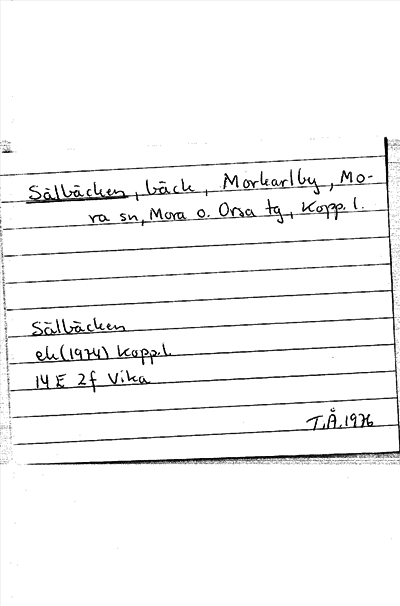 Sälbäcken, bäck, Morkarlby, Mo-
ra sn, Mora o. Orsa tg, Kopp. l.
Sälbäcken
ek (1974) Kopp.l.
14 E 2f Vika
T.Å. 1976